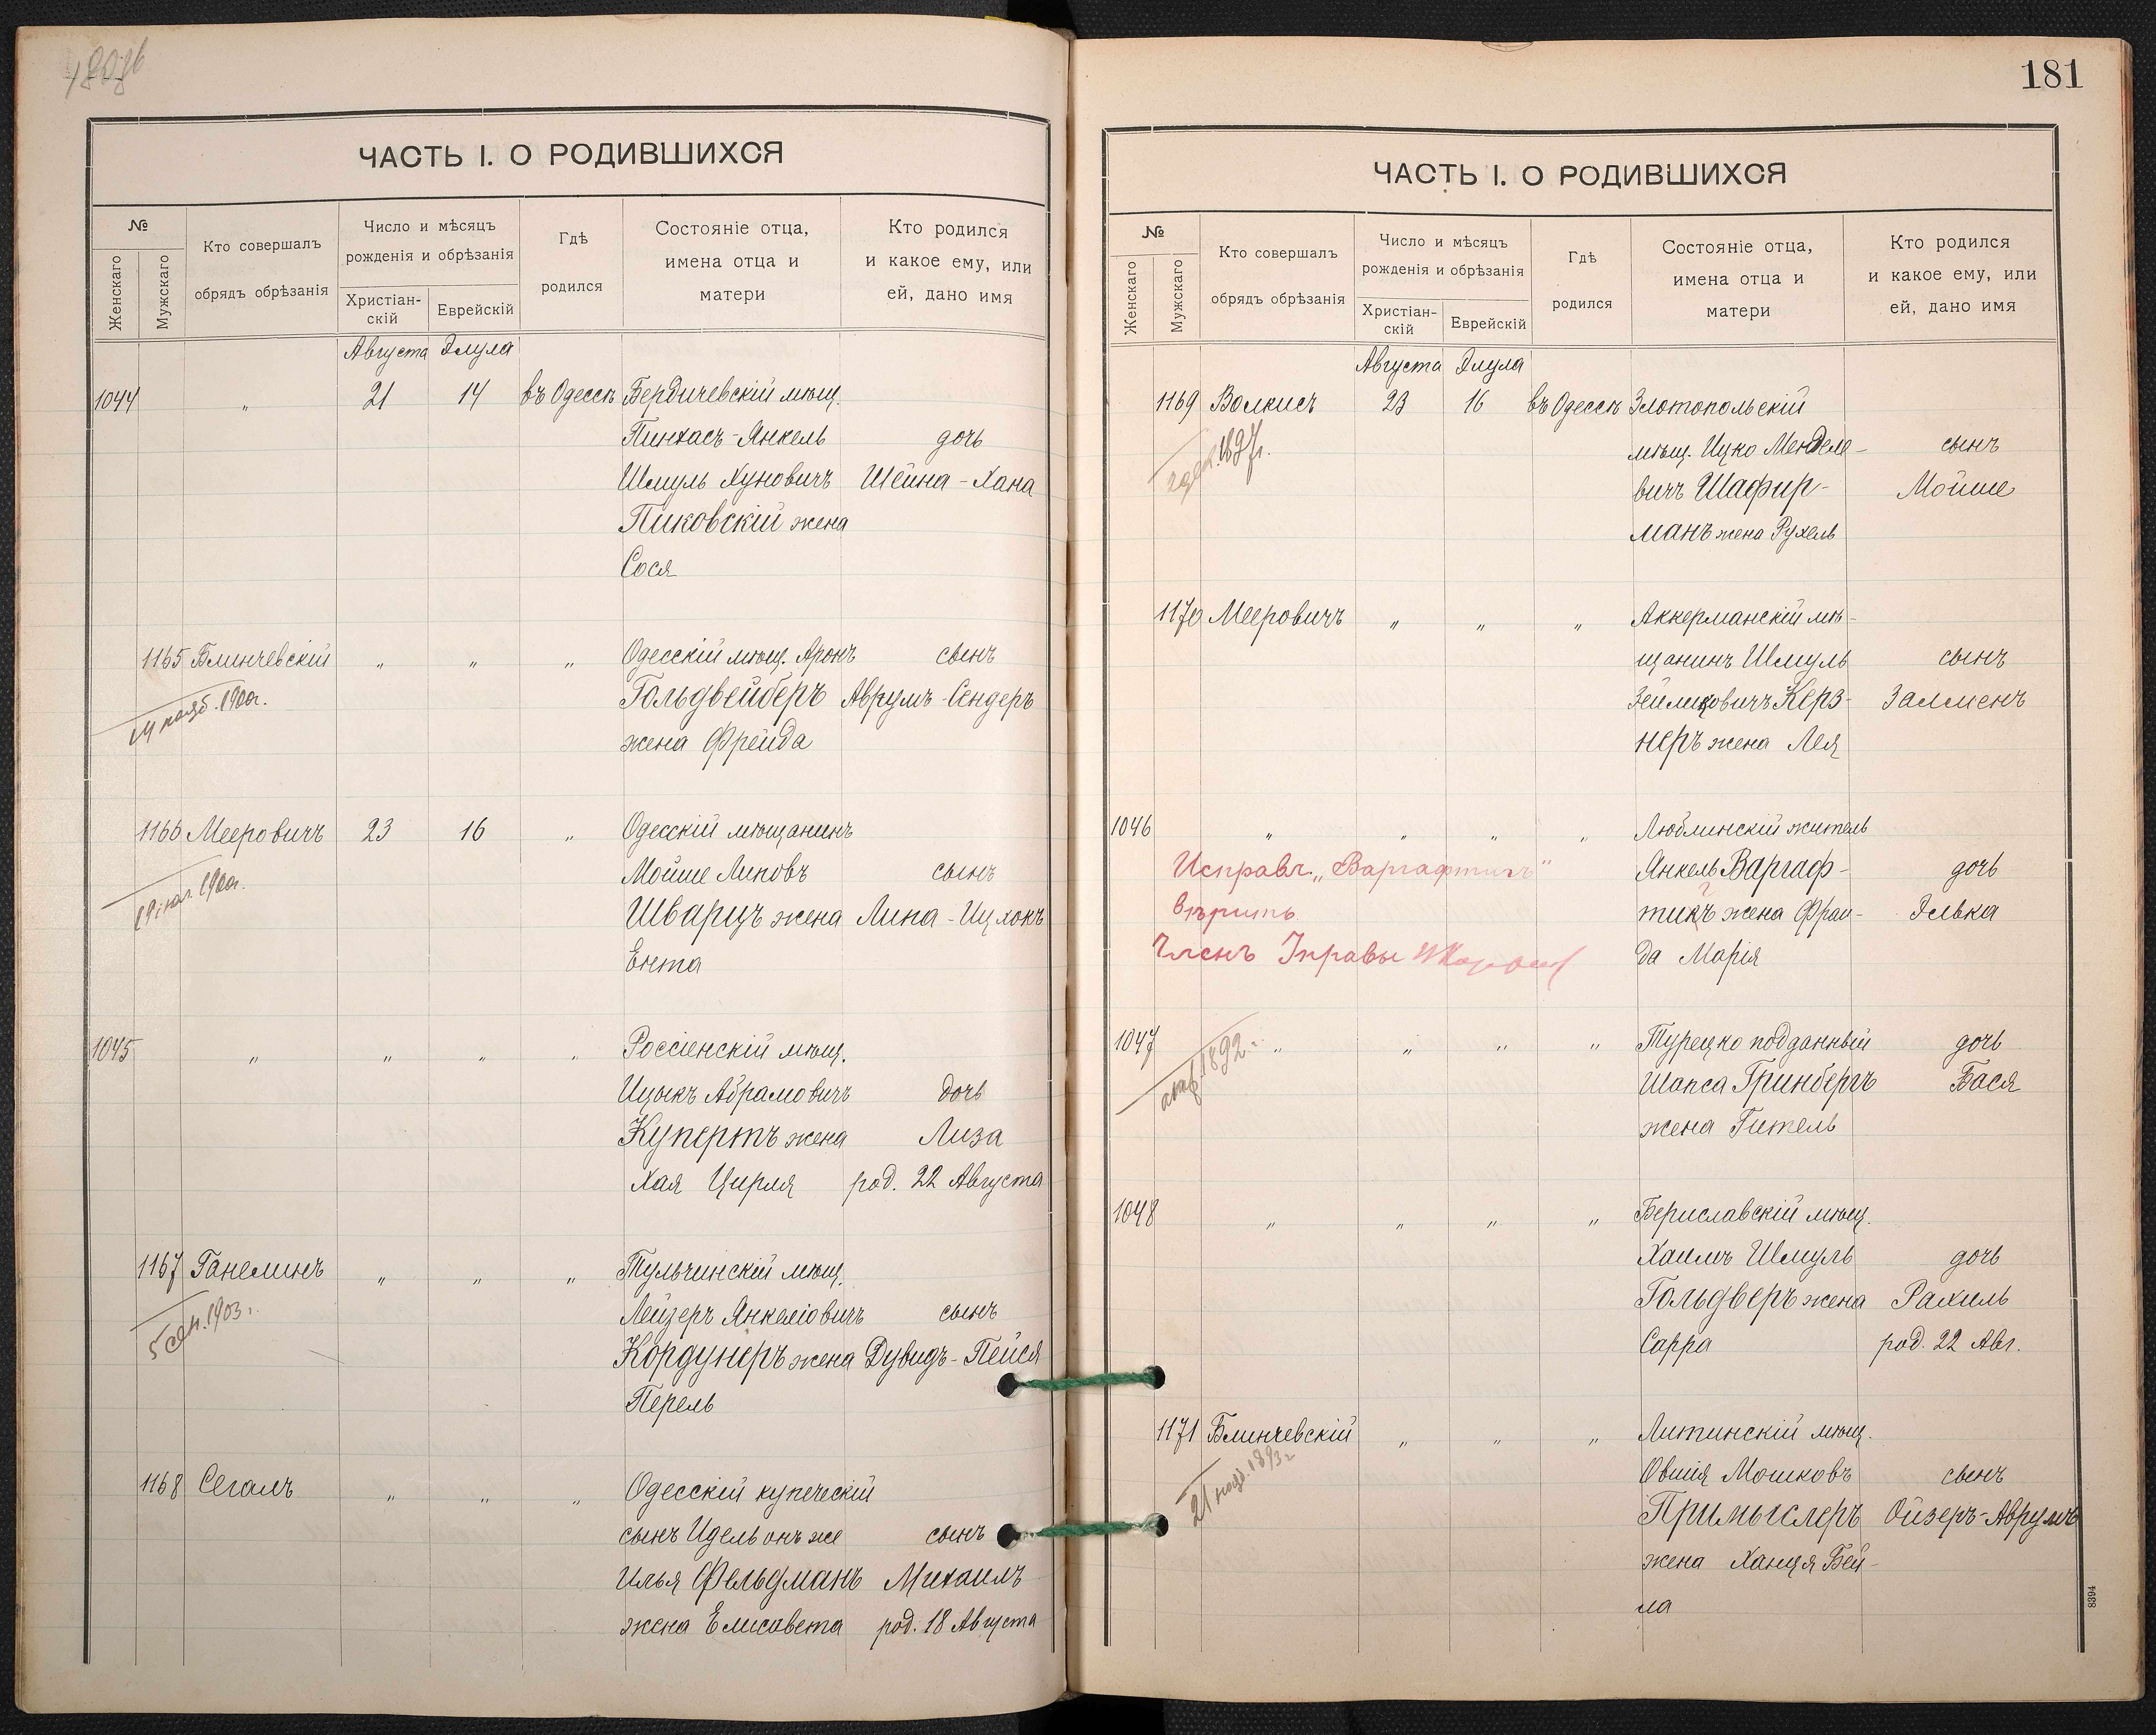 180об
ЧАСТЬ I. О РОДИВШИХСЯ
№
Женскаго
Мужскаго
Кто совершалъ
обрядъ обрѣзанія
Число и мѣсяцъ
рожденія и обрѣзанія
Христіан-
скій
Еврейскій
Гдѣ
родился
Состояніе отца,
имена отца и
матери
Кто родился
и какое ему, или
ей, дано имя
Августа Элула
1044 " 21 14 въ Одессѣ Бердичевскій мѣщ.
Пинхасъ-Янкель дочь
Шмуль Хуновичъ Шейна-Хана
Пиковскій жена
Сося
1165 Блинчевскій " " " Одесскій мѣщ. Аронъ сынъ
Гольдвейберъ Аврумъ-Сендеръ
1900г.
жена Фрейда
1166 Мееровичъ 23 16 " Одесскій мѣщанинъ
Мойше Липовъ сынъ
1900г.
Шварцъ жена Липа-Ицхокъ
Ента
1045 " " " " Россіенскій мѣщ.
Ицыкъ Абрамовичъ дочь
Купертъ жена Лиза
Хая Цирля род. 22 Августа
1167 Ганелинъ " " " Тульчинскій мѣщ.
Лейзеръ Янкеліовичъ сынъ
1903г.
Кордунеръ жена Дувидъ-Пейся
Перель
1168 Сегалъ " " " Одесскій купеческій
сынъ Идель онъ же сынъ
Илья Фельдманъ Михаилъ
жена Елисавета род. 18 Августа
181
ЧАСТЬ I. О РОДИВШИХСЯ
№
Женскаго
Мужскаго
Кто совершалъ
обрядъ обрѣзанія
Число и мѣсяцъ
рожденія и обрѣзанія
Христіан-
скій
Еврейскій
Гдѣ
родился
Состояніе отца,
имена отца и
матери
Кто родился
и какое ему, или
ей, дано имя
Августа Элула
1169 Волкисъ 23 16 въ Одессѣ Златопольскій
1897г.
мѣщ. Ицко Менделе- сынъ
вичъ Шафир- Мойше
манъ жена Рухель
1170 Мееровичъ " " " Аккерманскій мѣ-
щанинъ Шмуль сынъ
Зейликовичъ Керз- Залменъ
неръ жена Лея
1046 " " " " Люблинскій житель
Исправл. „Варгафтигъ" Янкель Варгаф- дочь
вѣрить тикъ жена Фраи- Элька
Членъ Управы да Марія
1047 " " " " Турецко подданный дочь
1892г.
Шапса Гринбергъ Бася
жена Гитель
1048 " " " " Бериславскій мѣщ.
Хаимъ Шмуль дочь
Гольдверъ жена Рахиль
Сарра род. 22 Авг.
1171 Блинчевскій " " " Литинскій мѣщ.
1893г
Овшія Мошковъ сынъ
Примыслеръ Ойзеръ-Аврумъ
жена Ханця Бей-
ла
8394